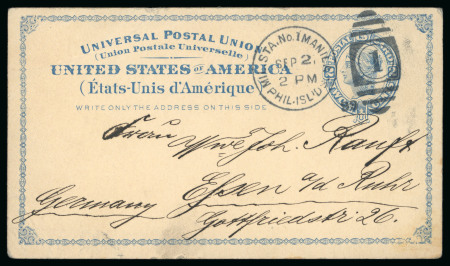 UNIVERSAL POSTAL UNION
(Union Postale Universelle)
UNITED STATES OF AMERICA
(États-Unis d'Amérique)
WRITE ONLY THE ADDRESS ON THIS SIDE
MIL. STA. No. 1 MANILA
SEP 2
2 PM
PHIL. ISL'DS
1
Frau Wwe. Joh. Rauft
Essen a/d Ruhr
Germany
Gottfriedstr 26.